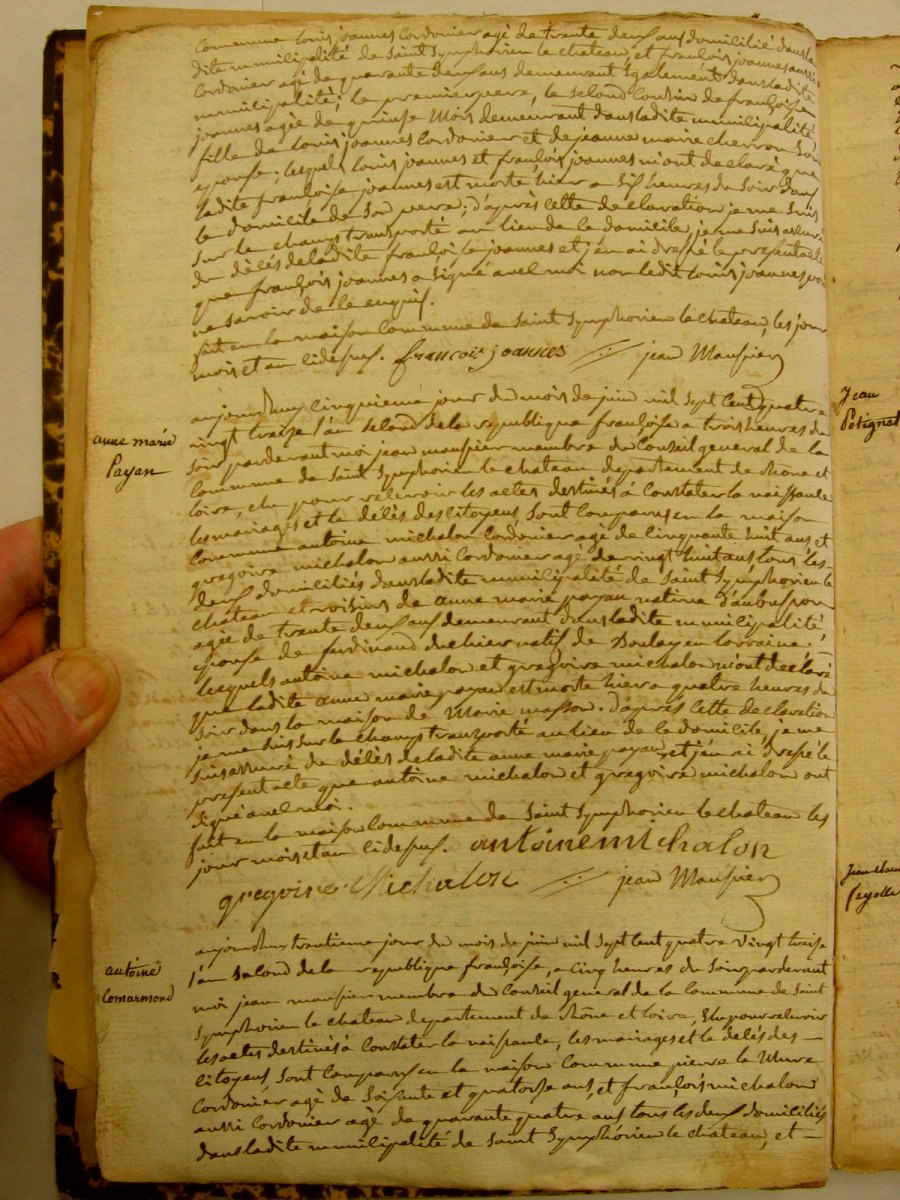 commune louis joannes cordonier agé de trante deux ans domicilié dans la
dite municipalité de saint symphorien le chateau, et françois joannes aussi
cordonier agé de quarante deux ans demeurant egalement dans ladite
municipalité; le premier pere, le second cousin de françoise
joannes agée de quinse mois demeurant dans ladite municipalité,
fille de louis joannes cordonier et de jeanne marie cherron son
epouse; lesquels louis joannes et françois joannes m'ont declaré que
ladite françoise joannes est morte hier a six heures du soir dans
le domicile de son pere; d'après cette declaration je me suis
sur le champs transporté au lieu de le domicile, je me suis assuré
du délés de ladite françoise joannes et j'en ai dressé le present acte
que françois joannes a signé avec moi non ledit louis joannes pour
ne savoir de ce enquis.
fait en la maison commune de saint symphorien le chateau, les jour
mois et an cidessus. francois joannes jean Maupier
anne marie
Payan
aujourdhuy cinquieme jour du mois de juin mil sept cent quatre
vingt treise l'an second de la republique françoise a trois heures du
soir pardevant moi jean maupier membre du conseil general de la
commune de saint symphorien le chateau departement de rhone et
loire, elu pour recevoir les actes destinés à constater la naissance
les mariages et le délés des citoyens, sont comparus en la maison
commune antoine michalon cordonier agé de cinquante huit ans et
gregoire michalon aussi cordonier agé de vingt huit ans tous les
deux domiciliés dans ladite municipalité de saint symphorien le
chateau et voisins de anne marie payan native d'aubusson
agée de trante deux ans demeurant dans ladite municipalité
epouse de ferdinand duchier natif de Boulay en lorraine;
lesquels antoine michalon et gregoire michalon m'ont declaré
que ladite anne marie payan est morte hier a quatre heures du
soir dans la maison de Marie masson. d'après cette declaration
je me suis sur le champs transporté au lieu de le domicile, je me
suis assuré du délés de ladite anne marie payan, et j'en ai dressé le
present acte que antoine michalon et gregoire michalon ont
signé avec moi.
fait en la maison commune de saint symphorien le chateau les
jour mois et an cidessus. antoine michalon
gregoire Michalon jean Maupier
antoine
Comarmond
aujourdhuy trantieme jour du mois de juin mil sept cent quatre vingt treise
l'an second de la republique françoise, a cinq heures du soir pardevant
moi jean maupier membre du conseil general de la commune de saint
symphorien le chateau departement de rhône et loire, elu pour recevoir
les actes destinés à constater la naissance, les mariages et le délés des
citoyens, sont comparus en la maison commune pierre la Mure
cordonier agé de soixante et quatorse ans, et françois michalon
aussi cordonier agé de quarante quatre ans tous les deux domiciliés
dans ladite municipalité de saint symphorien le chateau, et
Jean
Petignat
Jean
fayolle